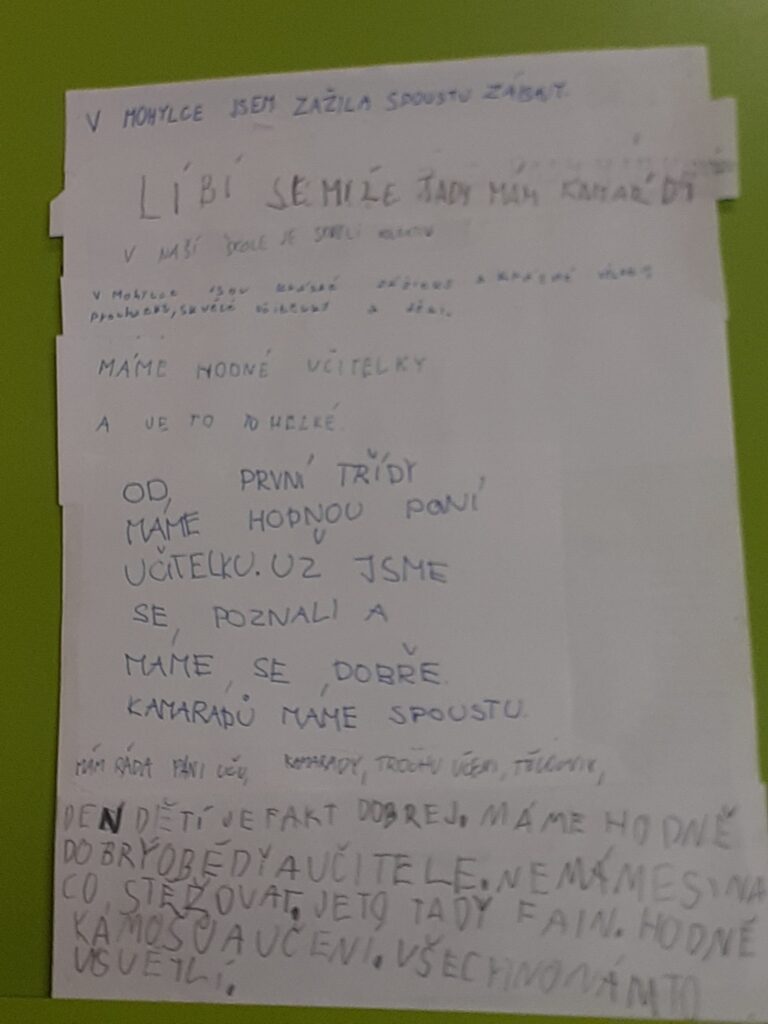 V MOHYLCE JSEM ZAŽILA SPOUSTU ZÁBAVY.
LÍBÍ SE MI ŽE TADY MÁM KAMARÁDY
V NAŠÍ ŠKOLE JE
V MOHYLCE JSOU A
PROCHÁZKY, SKVĚLÉ UČITELKY A DĚTI.
MÁME HODNÉ UČITELKY
A JE TO TO HEZKÉ.
OD PRVNÍ TŘÍDY
MÁME HODNOU PANÍ
UČITELKU. UŽ JSME
SE POZNALI A
MÁME SE DOBŘE.
KAMARÁDŮ MÁME SPOUSTU.
MÁM RÁDA PÁNI UČU, KAMARÁDY, TROCHU UČENÍ,
DEN DĚTÍ JE FAKT DOBREJ. MÁME HODNĚ
DOBRÝ OBĚDY A UČITELE. NEMÁME SI NA
CO STĚŽOVAT. JE TO TADY FAIN. HODNĚ
KÁMOŠŮ A UČENÍ. VŠECHNO NÁM TO
VISVĚTLÍ.